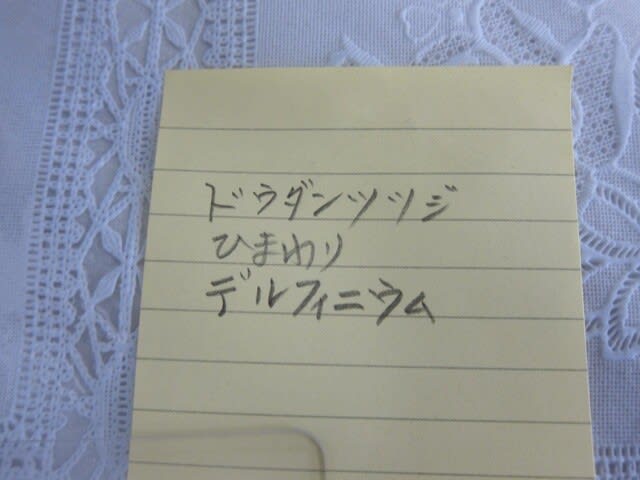 ドウダンツツジ
ひまわり
デルフィニウム